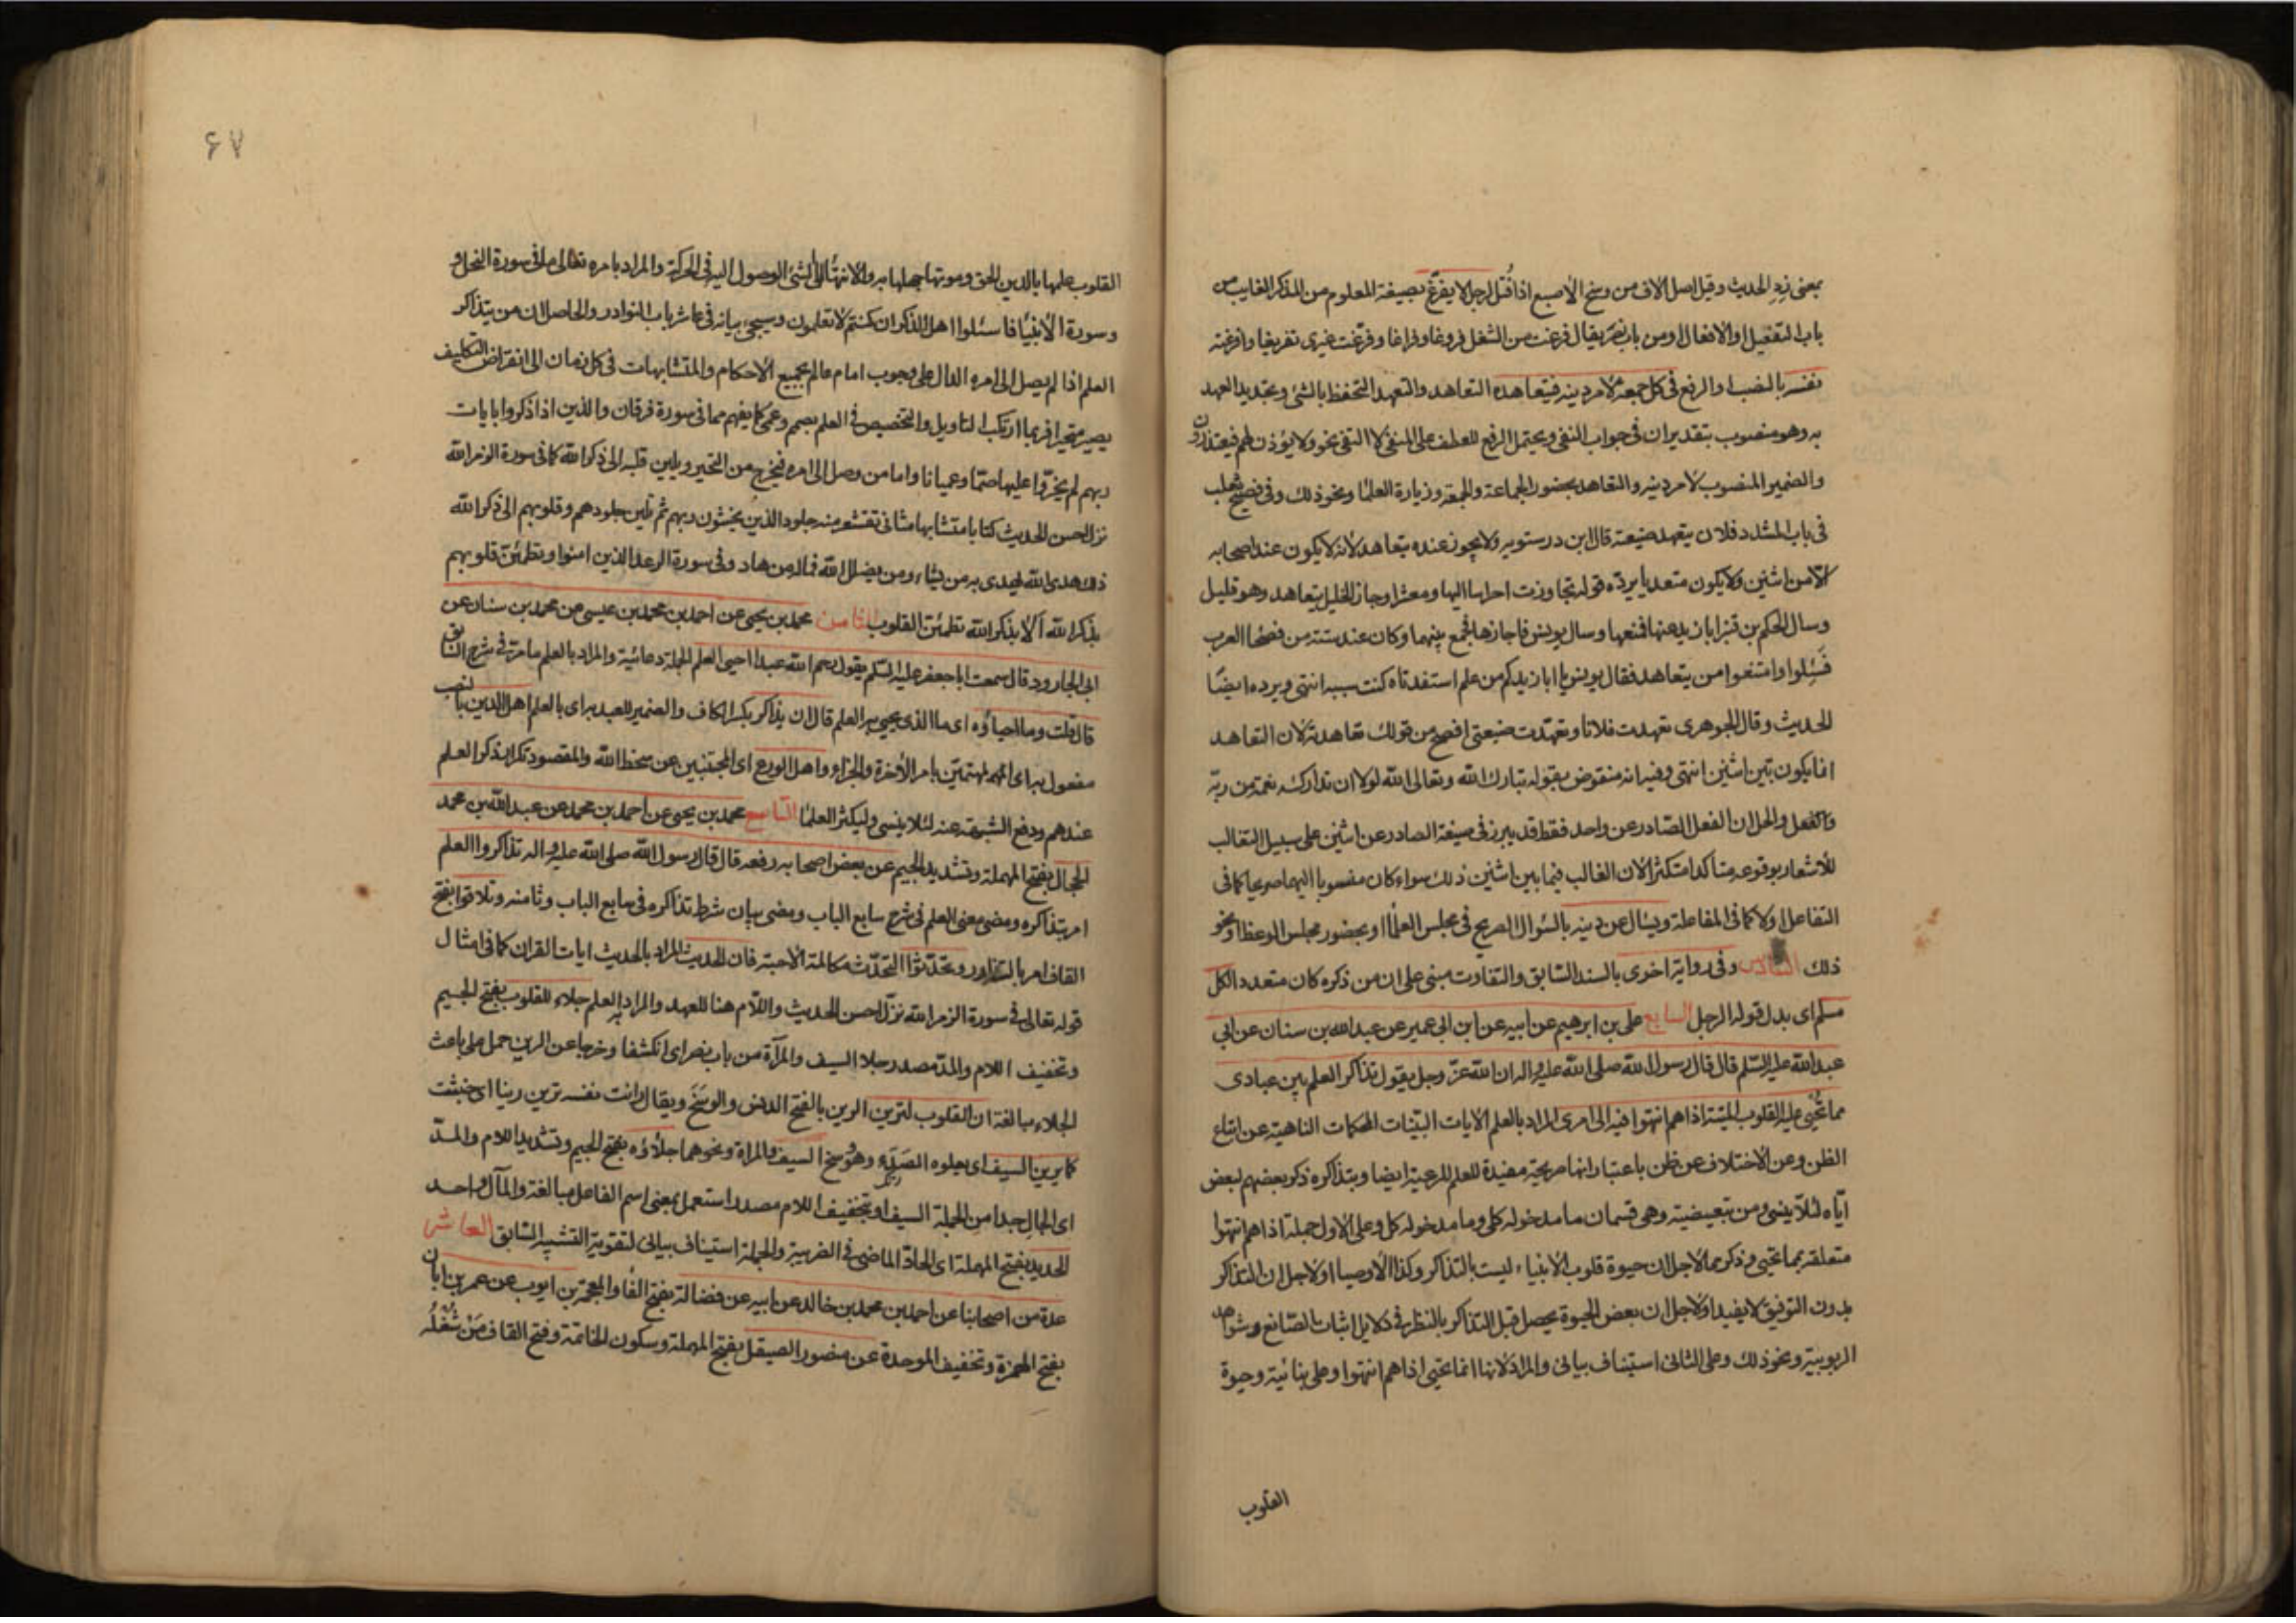 بمعنى زِدِ الحديث وقيل اصل الاف من وسخ الأصبع اذا فُتل لرجل لا يفرّغ بصيغة المعلوم من المذكر الغايب من
باب التفعيل او الافعال او من باب نصر يقال فرغت من الشغل فروغا وفراغا وفرّغت غيرى تفريغا وافرغته
نفسه بالنصب او الرفع فى كل جمعة لأمر دينه فيتعاهده التعاهد والتعهد التحفظ بالشئ وتجديد العهد
به وهو منصوب بتقدير ان فى جواب النفى ويحتمل الرفع للعطف على المنفى لا النفى نحو ولا يؤذن لهم فيعتذرون
والضمير المنصوب لأمر دينه والتعاهد بحضور الجماعة والجمعة وزيارة العلما ونحو ذلك وفى فصيح ثعلب
فى باب المشدد فلان يتعهد ضيعته قال ابن درستويه ولا يجوز عنده يتعاهد لأنه لا يكون عند اصحابه
الّا من اثنين ولا يكون متعديا يردّه قوله تجاوزت احراسا اليها ومعشرا وجاز الخليل يتعاهد وهو قليل
وسال الحكم بن قنبر ابا زيد عنها فمنعها وسال يونس فاجازها فجمع بينهما وكان عنده ستة من فصحا العرب
فسُئِلوا وامتنعوا من يتعاهد فقال يونس يا ابا زيد كم من علم استفدناه كنت سببه انتهى ويرده ايضًا
الحديث وقال الجوهرى تعهدت فلانا وتعهّدت ضيعتى افصح من قولك تعاهدته لان التعاهد
انما يكون بين اثنين انتهى وفيه انه منقوض بقوله تبارك الله وتعالى الله لولا ان تداركه نعمة من ربّه
والحل ان الفعل الصّادر عن واحد فقط قد يبرز فى صيغة الصادر عن اثنين على سبيل التغالب
للأشعار بوقوعه متأكدا متكثرا لان الغالب فيما بين اثنين ذلك سواء كان منسوبا اليهما صريحا كما فى
التفاعل او لا كما فى المفاعلة ويسال عن دينه بالسّؤال الصريح فى مجلس العلماء او بحضور مجلس الوعظ او نحو
ذلك السّادس وفى رواية اخرى بالسند السّابق والتفاوت مبنى على ان من ذكره كان متعدد الكل
مسلم اى بدل قوله الرجل السابع على بن ابرهيم عن ابيه عن ابن ابى عمير عن عبد الله بن سنان عن ابى
عبد الله عليه السّلم قال قال رسول الله صلى الله عليه واله ان الله عزّ وجل يقول تذاكر العلم بين عبادى
مما تُحيٰى عليه القلوب الميّتة اذا هم انتهوا فيه الى امرى المراد بالعلم الايات البيّنات المحكمات الناهية عن اتباع
الظن وعن الاختلاف عن ظن باعتبار انها صريحة مفيدة للعلم للرعية ايضا وبتذاكره ذكر بعضهم لبعض
ايّاه لئلّا ينسى ومن تبعيضيّة وهى قسمان ما مدخوله كلى وما مدخوله كل وعلى الاول جملة اذا هم انتهوا
متعلقة بمما تحيى وذكر مما لاجل ان حيوة قلوب الأنبياء ليست بالتذاكر وكذا الأوصيا او لاجل ان التذاكر
بدون التوفيق لا يفيد او لاجل ان بعض الحيوة يحصل قبل التذاكر بالنظر فى دلايل اثبات الصّانع وشواهد
الربوبية ونحو ذلك وعلى الثانى استيناف بيانى والمراد لانها انما تحيى اذا هم انتهوا وعلى بنائيّة وحيوة
القلوب
۶۷
القلوب علمها بالدين الحق وموتها جهلها به والانتهاء الى الشئ الوصول اليه فى الحركة والمراد بامره تعالى ما فى سورة النحل و
وسورة الأنبيا فاسئلوا اهل الذكر ان كنتم لا تعلمون وسيجئ بيانه فى عاشر باب النوادر والحاصل ان من يتذاكر
العلم اذا لم يصل الى امره الدال على وجوب امام عالم بجميع الأحكام والمتشابهات فى كل زمان الى انقراض التكليف
يصير متحيرا فربما ارتكب التاويل والتخصيص فى العلم بصمم وعمى كما يفهم مما فى سورة فرقان والذين اذا ذكروا بايات
ربهم لم يخرّوا عليها صمّا وعميانا واما من وصل الى امره فيخرج من التحير ويلين قلبه الى ذكر الله كما فى سورة الزمر الله
نزل احسن الحديث كتابا متشابها مثانى تقشعر منه جلود الذين يخشون ربهم ثم تلين جلودهم وقلوبهم الى ذكر الله
ذلك هدى الله يهدى به من يشاء ومن يضلل الله فما له من هاد وفى سورة الرعد الذين امنوا وتطمئنّ قلوبهم
بذكر الله ألا بذكر الله تطمئنّ القلوب الثامن محمد بن يحيى عن احمد بن محمد بن عيسى عن محمد بن سنان عن
ابى الجارود قال سمعت ابا جعفر عليه السّلم يقول رحم الله عبدا احيى العلم الجملة دعائية والمراد بالعلم ما مرّ فى شرح السّابق
قال قلت وما احياؤه اى ما الذى يحيى به العلم قال ان يذاكر بكسر الكاف والضمير للعبد به اى بالعلم اهل الدين بالنصب
مفعول به اى المهتمين بامر الأخرة والجزاء واهل الورع اى المجتنبين عن سخط الله والمقصود تكرار ذكر العلم
عندهم ودفع الشبهة عنه لئلا ينسى وليكثر العلما التاسع محمد بن يحيى عن احمد بن محمد عن عبد الله بن محمد
الحجال بفتح المهملة وتشديد الجيم عن بعض اصحابه رفعه قال قال رسول الله صلى الله عليه واله تذاكروا العلم
امر بتذاكره ومضى معنى العلم فى شرح سابع الباب ومضى بيان شرط تذاكره فى سابع الباب وثامنه وتلاقوا بفتح
القاف امر بالتزاور وتحدّثوا التحدّث مكالمة الأحبة فان الحديث المراد بالحديث ايات القران كما فى امثال
قوله تعالى فى سورة الزمر الله نزّل احسن الحديث واللّام هنا للعهد والمراد به العلم جلاء للقلوب بفتح الجيم
وتخفيف اللام والمدّ مصدر جلا السيف والمرآة من باب نصر اى انكشفا وخرجا عن الرين حمل على باعث
الجلاء مبالغة ان القلوب لترين الرين بالفتح الدنس والوسَخَ ويقال رانت نفسه ترين رينا اى خبثت
كما يرين السيف اى يعلوه الصَدَء وهو وسخ السيف والمراة ونحوهما جلاؤه بفتح الجيم وتشديد اللام والمدّ
اى الجال جدا من الجملة السيف او بتخفيف اللام مصدر استعمل بمعنى اسم الفاعل مبالغة والمآل واحد
الحديد بفتح المهملة اى الحادّ الماضى فى الضريبة والجملة استيناف بيانى لتقوية التشبيه السّابق العاشر
عدة من اصحابنا عن احمد بن محمد بن خالد عن ابيه عن فضالة بفتح الفا والمعجمة بن ايوب عن عمر بن ابان
بفتح الهمزة وتخفيف الموحدة عن منصور الصيقل بفتح المهملة وسكون الخاتمة وفتح القاف مَنْ شُغْلُه